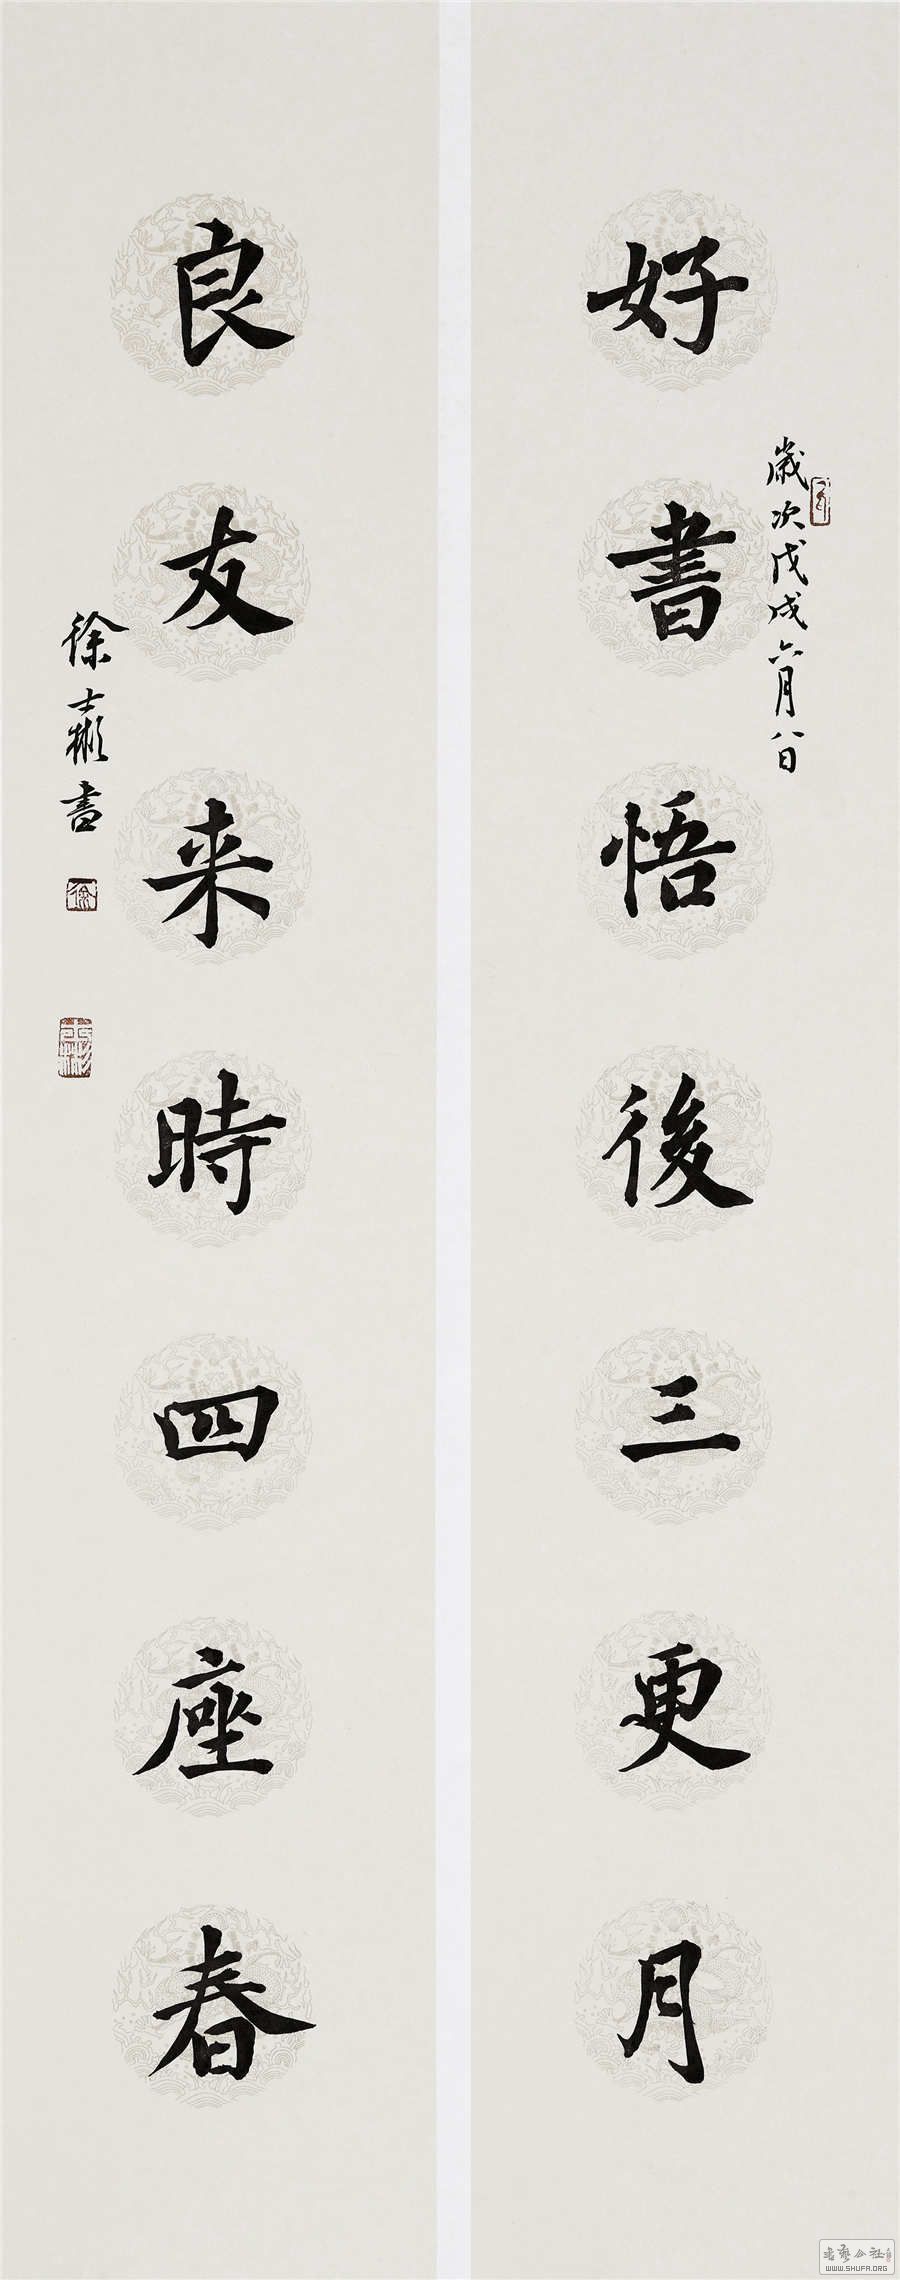 歲次戊戌六月八日
好書悟後三更月
良友来時四座春
徐士彬書
徐
WWW.SHUFA.ORG